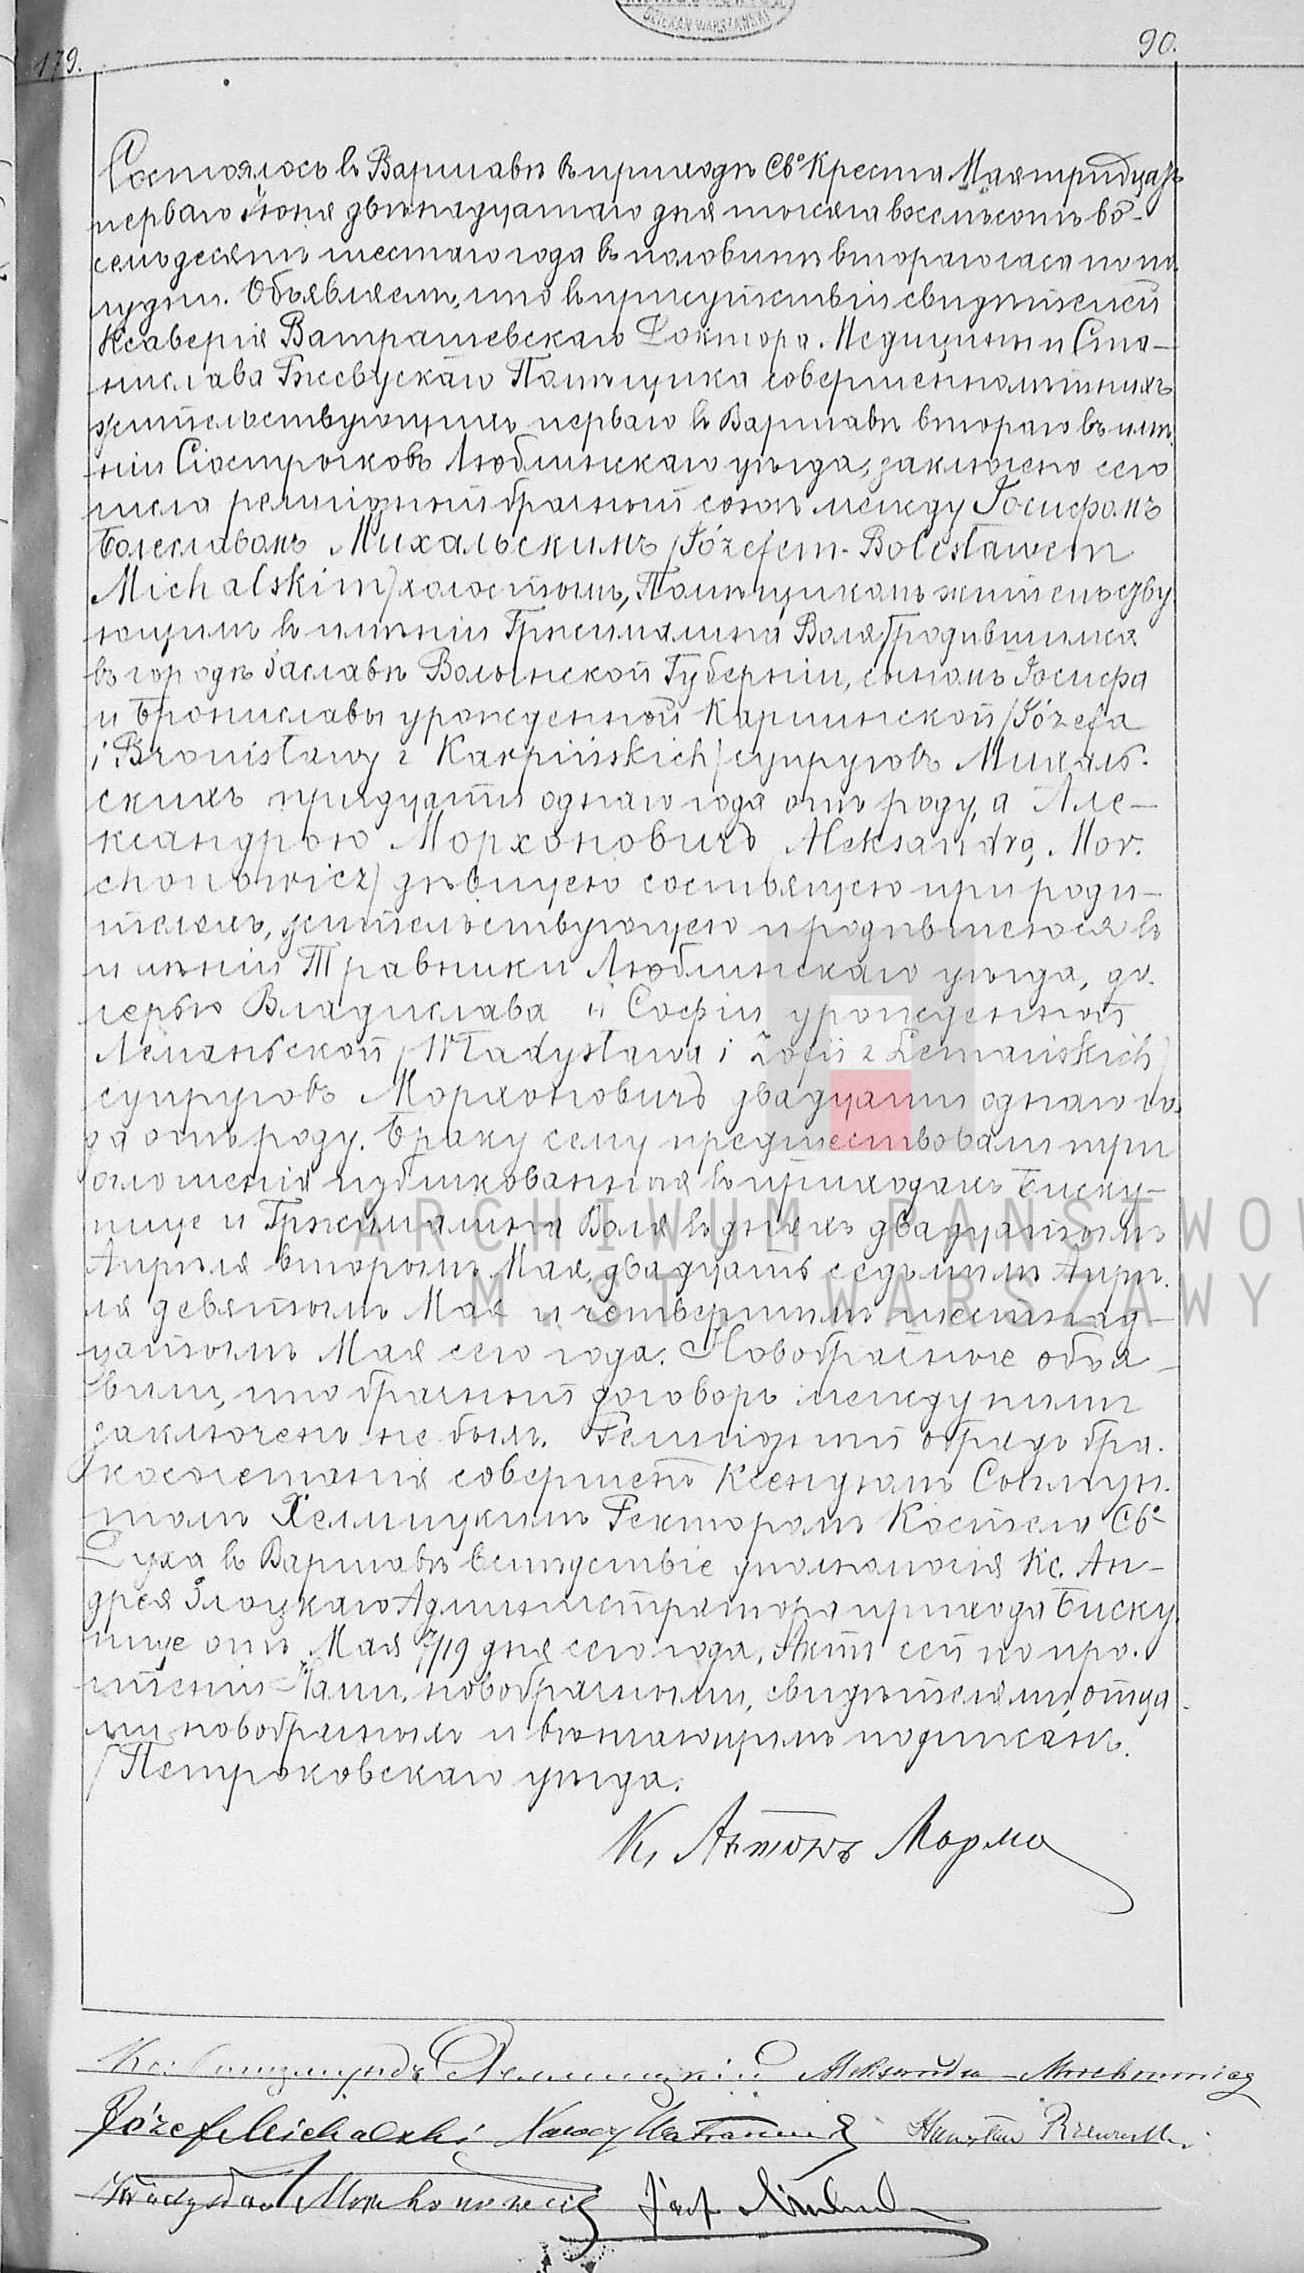 DZIEKAN WARSZAWSKI
179.
90.
Состоялось въ Варшавѣ въ приходѣ Св. Креста Мая тридцать
перваго Іюня двѣнадцатаго дня тысяча восемьсотъ во-
семьдесятъ шестаго года въ половинѣ втораго часа по по-
лудни. Объявляемъ, что въ присутствіи свидѣтелей
Ксаверія Ватрашевскаго Доктора Медицины и Ста-
нислава Ржевускаго Помѣщика совершеннолѣтнихъ
жительствующихъ перваго въ Варшавѣ втораго въ имѣ-
ніи Сіостржитковъ Люблинскаго уѣзда, заключенъ сего
числа религіозный брачный союзъ между Іосифомъ
Болеславомъ Михальскимъ /Józefem-Bolesławem
Michalskim/ холостымъ, Помѣщикомъ жительству
ющимъ въ имѣніи Гржималина Воля/ родившимся
въ городѣ Заславѣ Волынской Губерніи, сыномъ Іосифа
и Брониславы урожденной Карпинской /Józefa
i Bronisławy z Karpińskich/ супруговъ Михаль-
скихъ тридцати однаго года отъ роду, а Але-
ксандрою Морхоновичъ /Aleksandrą Mor-
chonowicz/ дѣвицею состоящею при роди-
теляхъ, жительствующею и родившеюся въ
имѣніи Травники Люблинскаго уѣзда, до-
черью Владислава и Софіи урожденной
Леманьской /Władysława i Zofii z Lemańskich/
супруговъ Морхоновичъ двадцати однаго го-
да отъ роду. Браку сему предшествовали три
оглошенія публикованныя въ приходахъ Биску-
пице и Гржималина Воля въ дняхъ двадцатомъ
Апрѣля второмъ Мая, двадцать седьмымъ Апрѣ-
ля девятымъ Мая и четвертымъ шестнад-
цатымъ Мая сего года. Новобрачные объя-
вили, что брачный договоръ между ними
заключенъ не былъ. Религіозный обрядъ бра-
косочетанія совершенъ Ксендзомъ Сигизмун-
томъ Хелмицкимъ Ректоромъ Костела Св.
Духа въ Варшавѣ вслѣдствіе уполномочія Кс. Ан-
дрея Злоцкаго Администратора прихода Биску-
пице отъ Мая 7/19 дня сего года. Актъ сей по про-
чтеніи Нами, новобрачными, свидѣтелями, отца
ми новобрачныхъ и вѣнчающимъ подписанъ.
/Петроковскаго уѣзда.
Кс. Антонъ Мор
ARCHIWUM PAŃSTWOW
M.ST. WARSZAWY
Кс. Сигизмундъ Хелмицкій Aleksandra Morchonowicz
Józef Michalski Xawery Watraszewski Stanisław Rzewuski
Władysław Morchonowicz Józef Michalski